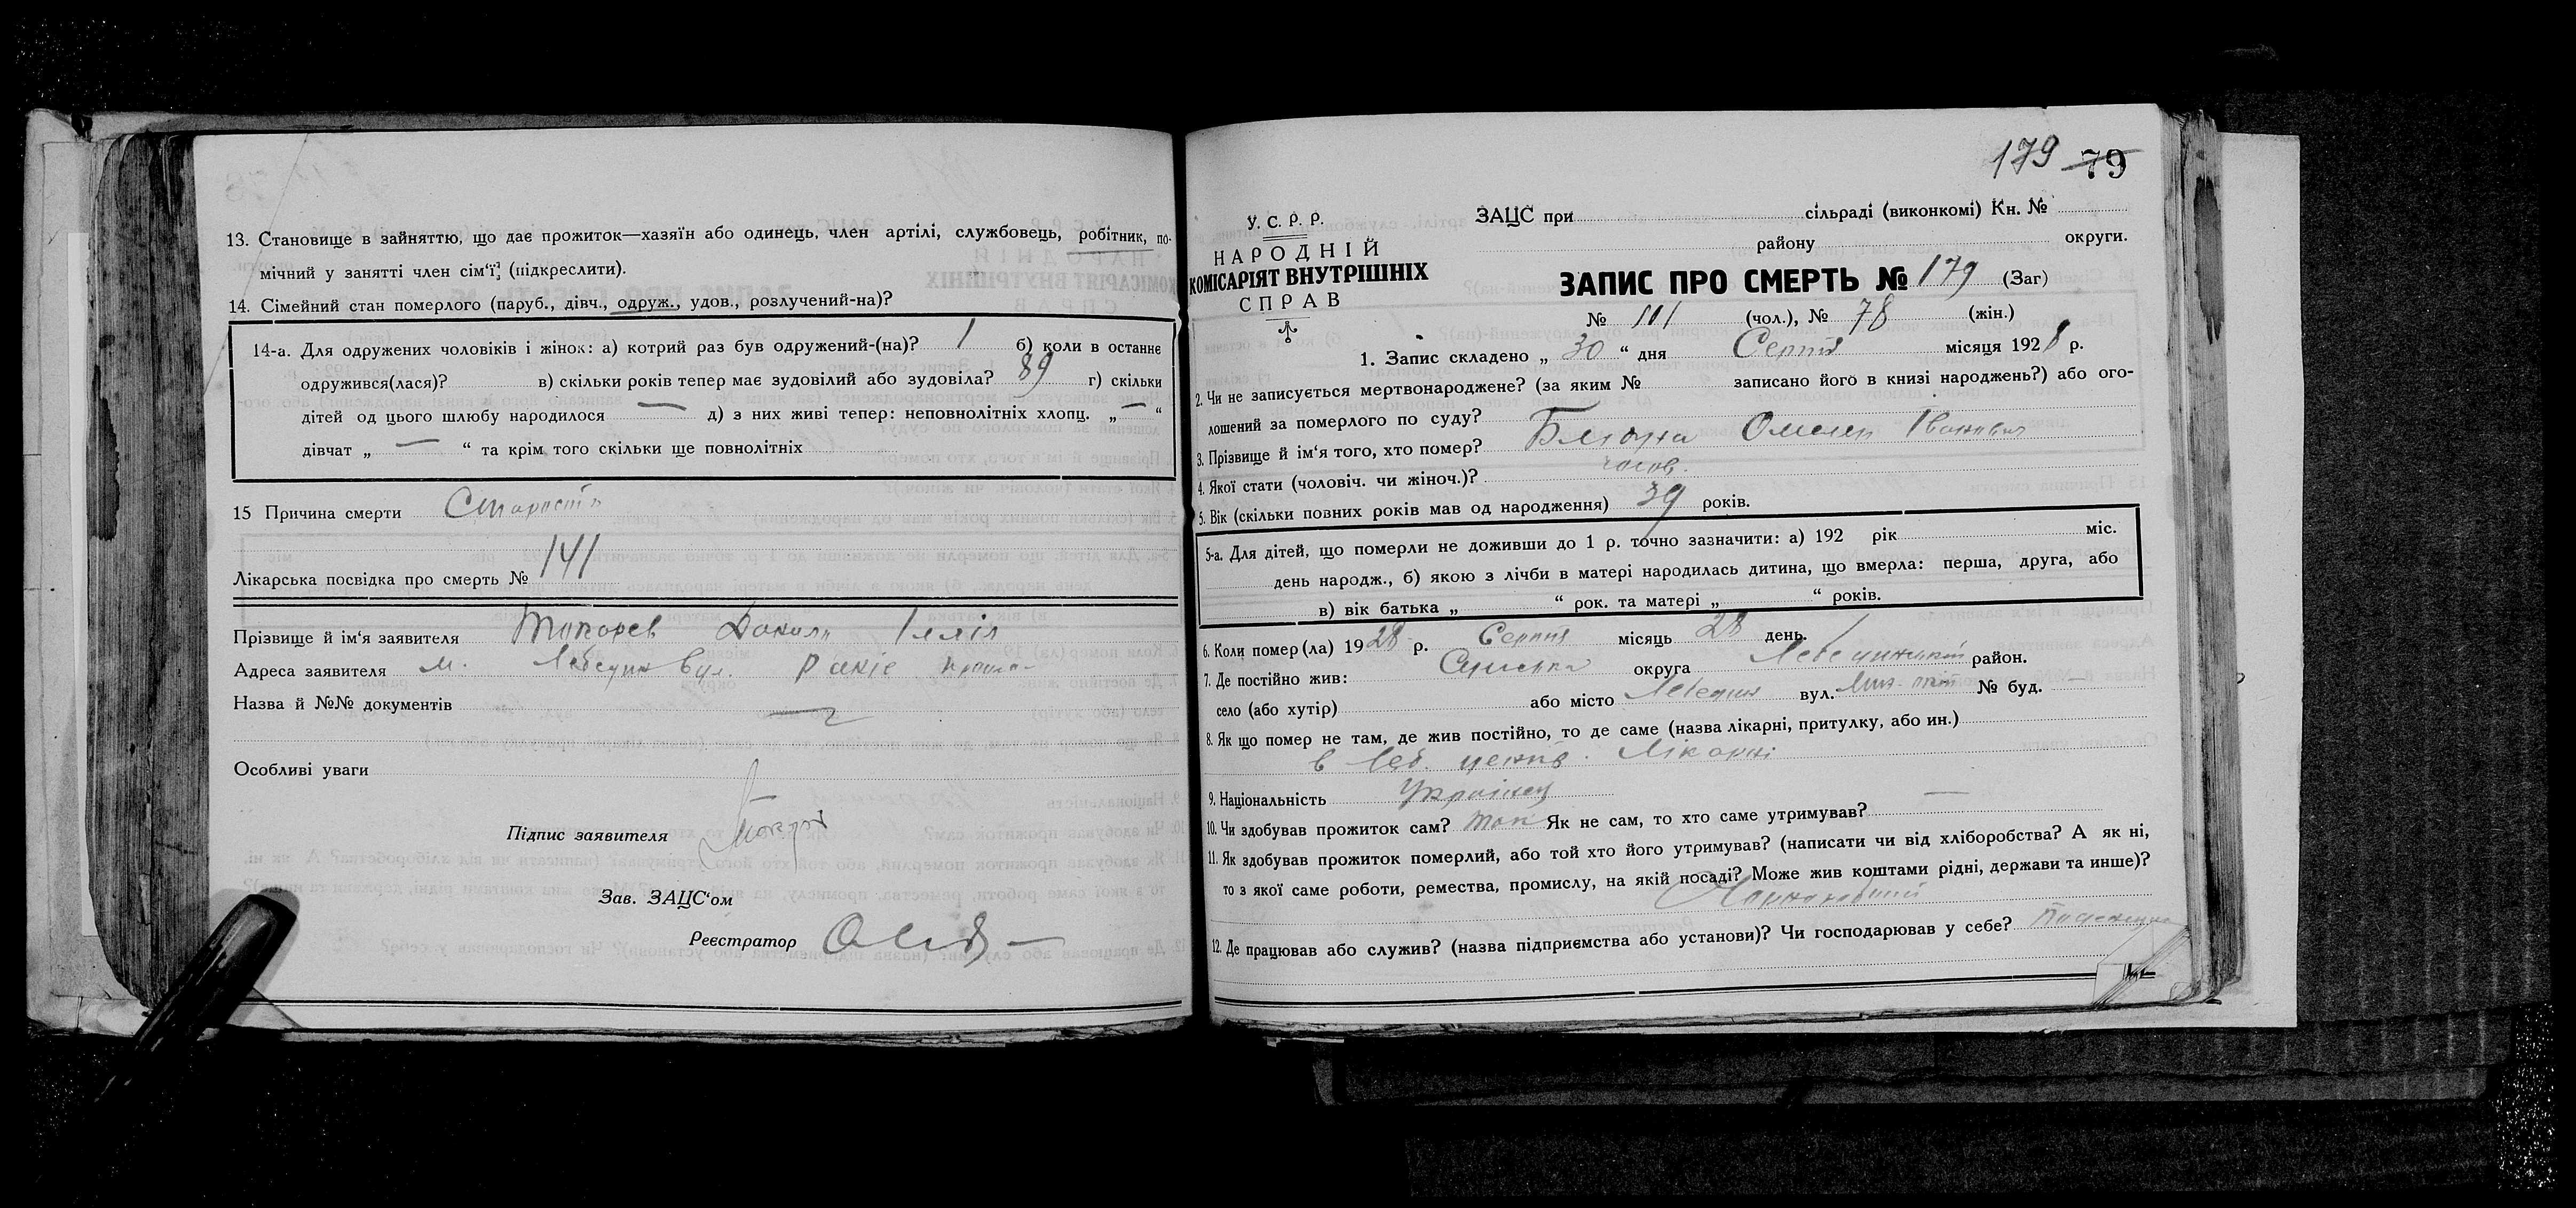 13. Становище в зайняттю, що дає прожиток—хазяїн або одинець, член артілі, службовець, робітник, по-
мічний у занятті член сім'ї (підкреслити).
14. Сімейний стан померлого (паруб., дівч., одруж., удов., розлучений-на)?
14-а. Для одружених чоловіків і жінок: а) котрий раз був одружений-(на)? 1 б) коли в останнє
одружився(лася)? в) скільки років тепер має зудовілий або зудовіла? 89 г) скільки
дітей од цього шлюбу народилося — д) з них живі тепер: неповнолітніх хлопц. „ — “
дівчат „ — “ та крім того скільки ще повнолітніх
15 Причина смерти Старость
Лікарська посвідка про смерть № 141
Прізвище й ім'я заявителя Токарев Ілліч
Адреса заявителя м. Лебедин вул.
Назва й №№ документів —
Особливі уваги
Підпис заявителя
Зав. ЗАЦС'ом
Реєстратор
179 79
У. С. Р. Р.
НАРОДНІЙ
КОМІСАРІЯТ ВНУТРІШНІХ
СПРАВ
ЗАЦС при сільраді (виконкомі) Кн. №
району округи.
ЗАПИС ПРО СМЕРТЬ № 179 (Заг)
№ 101 (чол.), № 78 (жін.)
1. Запис складено „ 30 “ дня Серпня місяця 1928 р.
2. Чи не записується мертвонароджене? (за яким № записано його в книзі народжень?) або ого-
лошений за померлого по суду?
3. Прізвище й ім'я того, хто помер? Омелян Іванович
4. Якої стати (чоловіч. чи жіноч.)? чолов.
5. Вік (скільки повних років мав од народження) 39 років.
5-а. Для дітей, що померли не доживши до 1 р. точно зазначити: а) 192 рік міс.
день народж., б) якою з лічби в матері народилась дитина, що вмерла: перша, друга, або
в) вік батька „ “ рок. та матері „ “ років.
6. Коли помер(ла) 1928 р. Серпня місяць 28 день.
7. Де постійно жив: Сумська округа Лебединський район.
село (або хутір) або місто Лебедин вул. № буд. —
8. Як що помер не там, де жив постійно, то де саме (назва лікарні, притулку, або ин.)
в Леб. центр. Лікарні
9. Національність Українец —
10. Чи здобував прожиток сам? так Як не сам, то хто саме утримував?
11. Як здобував прожиток померлий, або той хто його утримував? (написати чи від хліборобства? А як ні,
то з якої саме роботи, ремества, промислу, на якій посаді? Може жив коштами рідні, держави та инше)?
12. Де працював або служив? (назва підприємства або установи)? Чи господарював у себе?